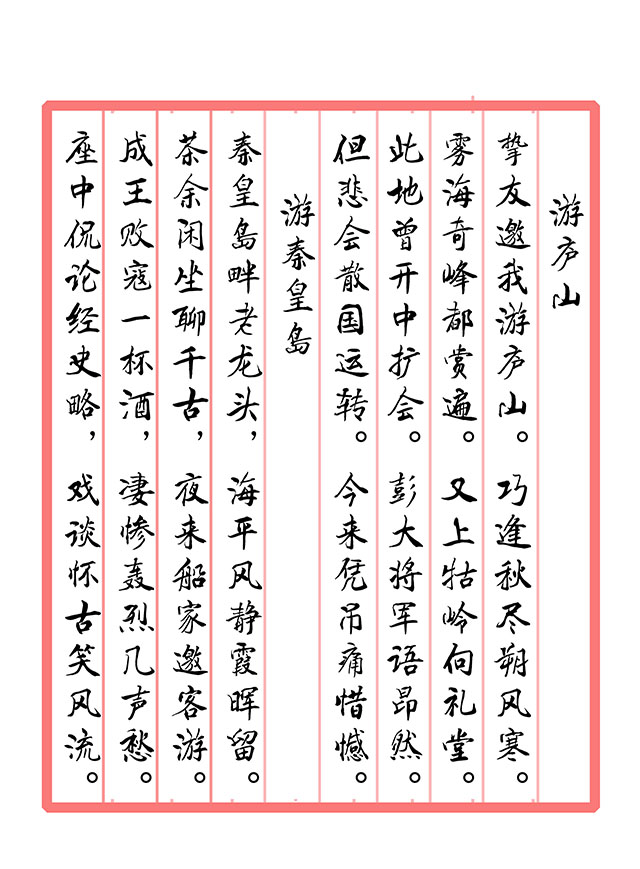 游庐山
挚友邀我游庐山。巧逢秋尽朔风寒。
雾海奇峰都赏遍。又上牯岭向礼堂。
此地曾开中扩会。彭大将军语昂然。
但悲会散国运转。今来凭吊痛惜憾。
游秦皇岛
秦皇岛畔老龙头，海平风静霞晖留。
茶余闲坐聊千古，夜来船家邀客游。
成王败寇一杯酒，凄惨轰烈几声愁。
座中侃论经史略，戏谈怀古笑风流。